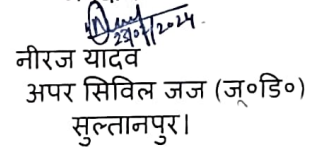 23/07/2024.
नीरज यादव
अपर सिविल जज (जू०डि०)
सुल्तानपुर।